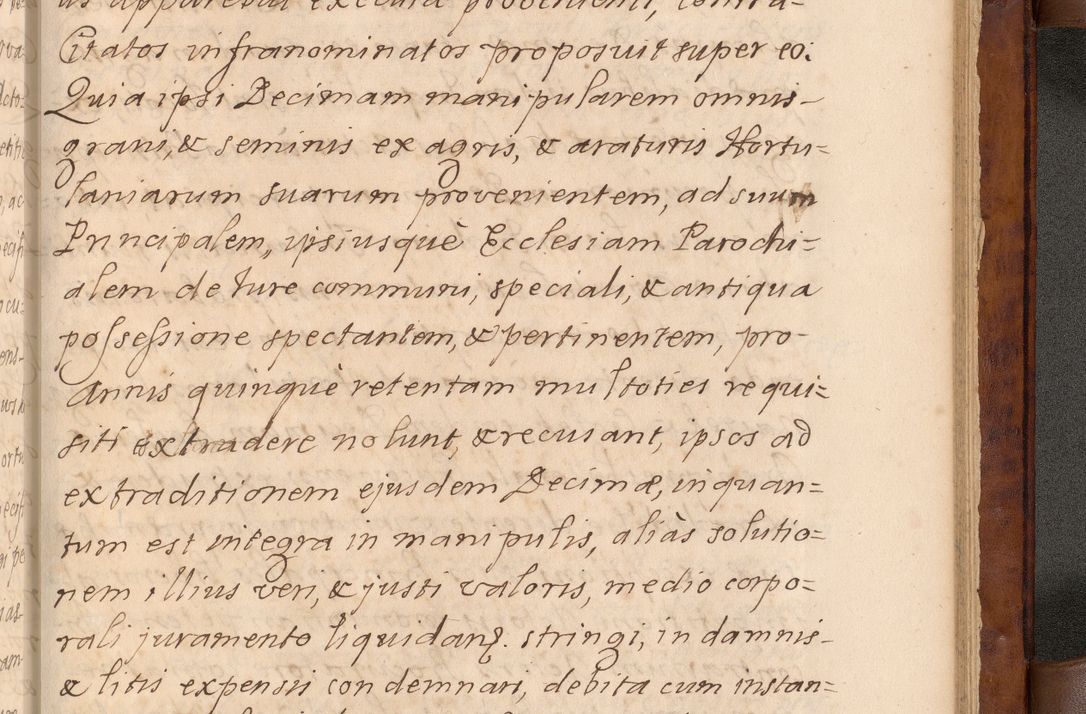 us apparebat execura provenienti, contra-
Citatos infranominatos proposuit super eo.
Quia ipsi Decimam manipularem omnis-
grani, & seminis ex agris, & araturis Hortu=
laniarum suarum provenientem, ad suum
Principalem, ipsiusquè Ecclesiam Parochi=
alem de Iure communi, speciali, & antiqua
possessione spectantem, & pertinentem, pro-
Annis quinquè retentam multoties requi=
siti extradere nolunt, & recusant, ipsos ad
extraditionem ejusdem Decimæ, inquan=
tum est integra in manipulis, aliàs solutio=
nem illius veri, & justi valoris, medio corpo=
rali juramento liquidanꝫ. stringi, in damnis-
& litis expensis condemnari, debita cum instan=